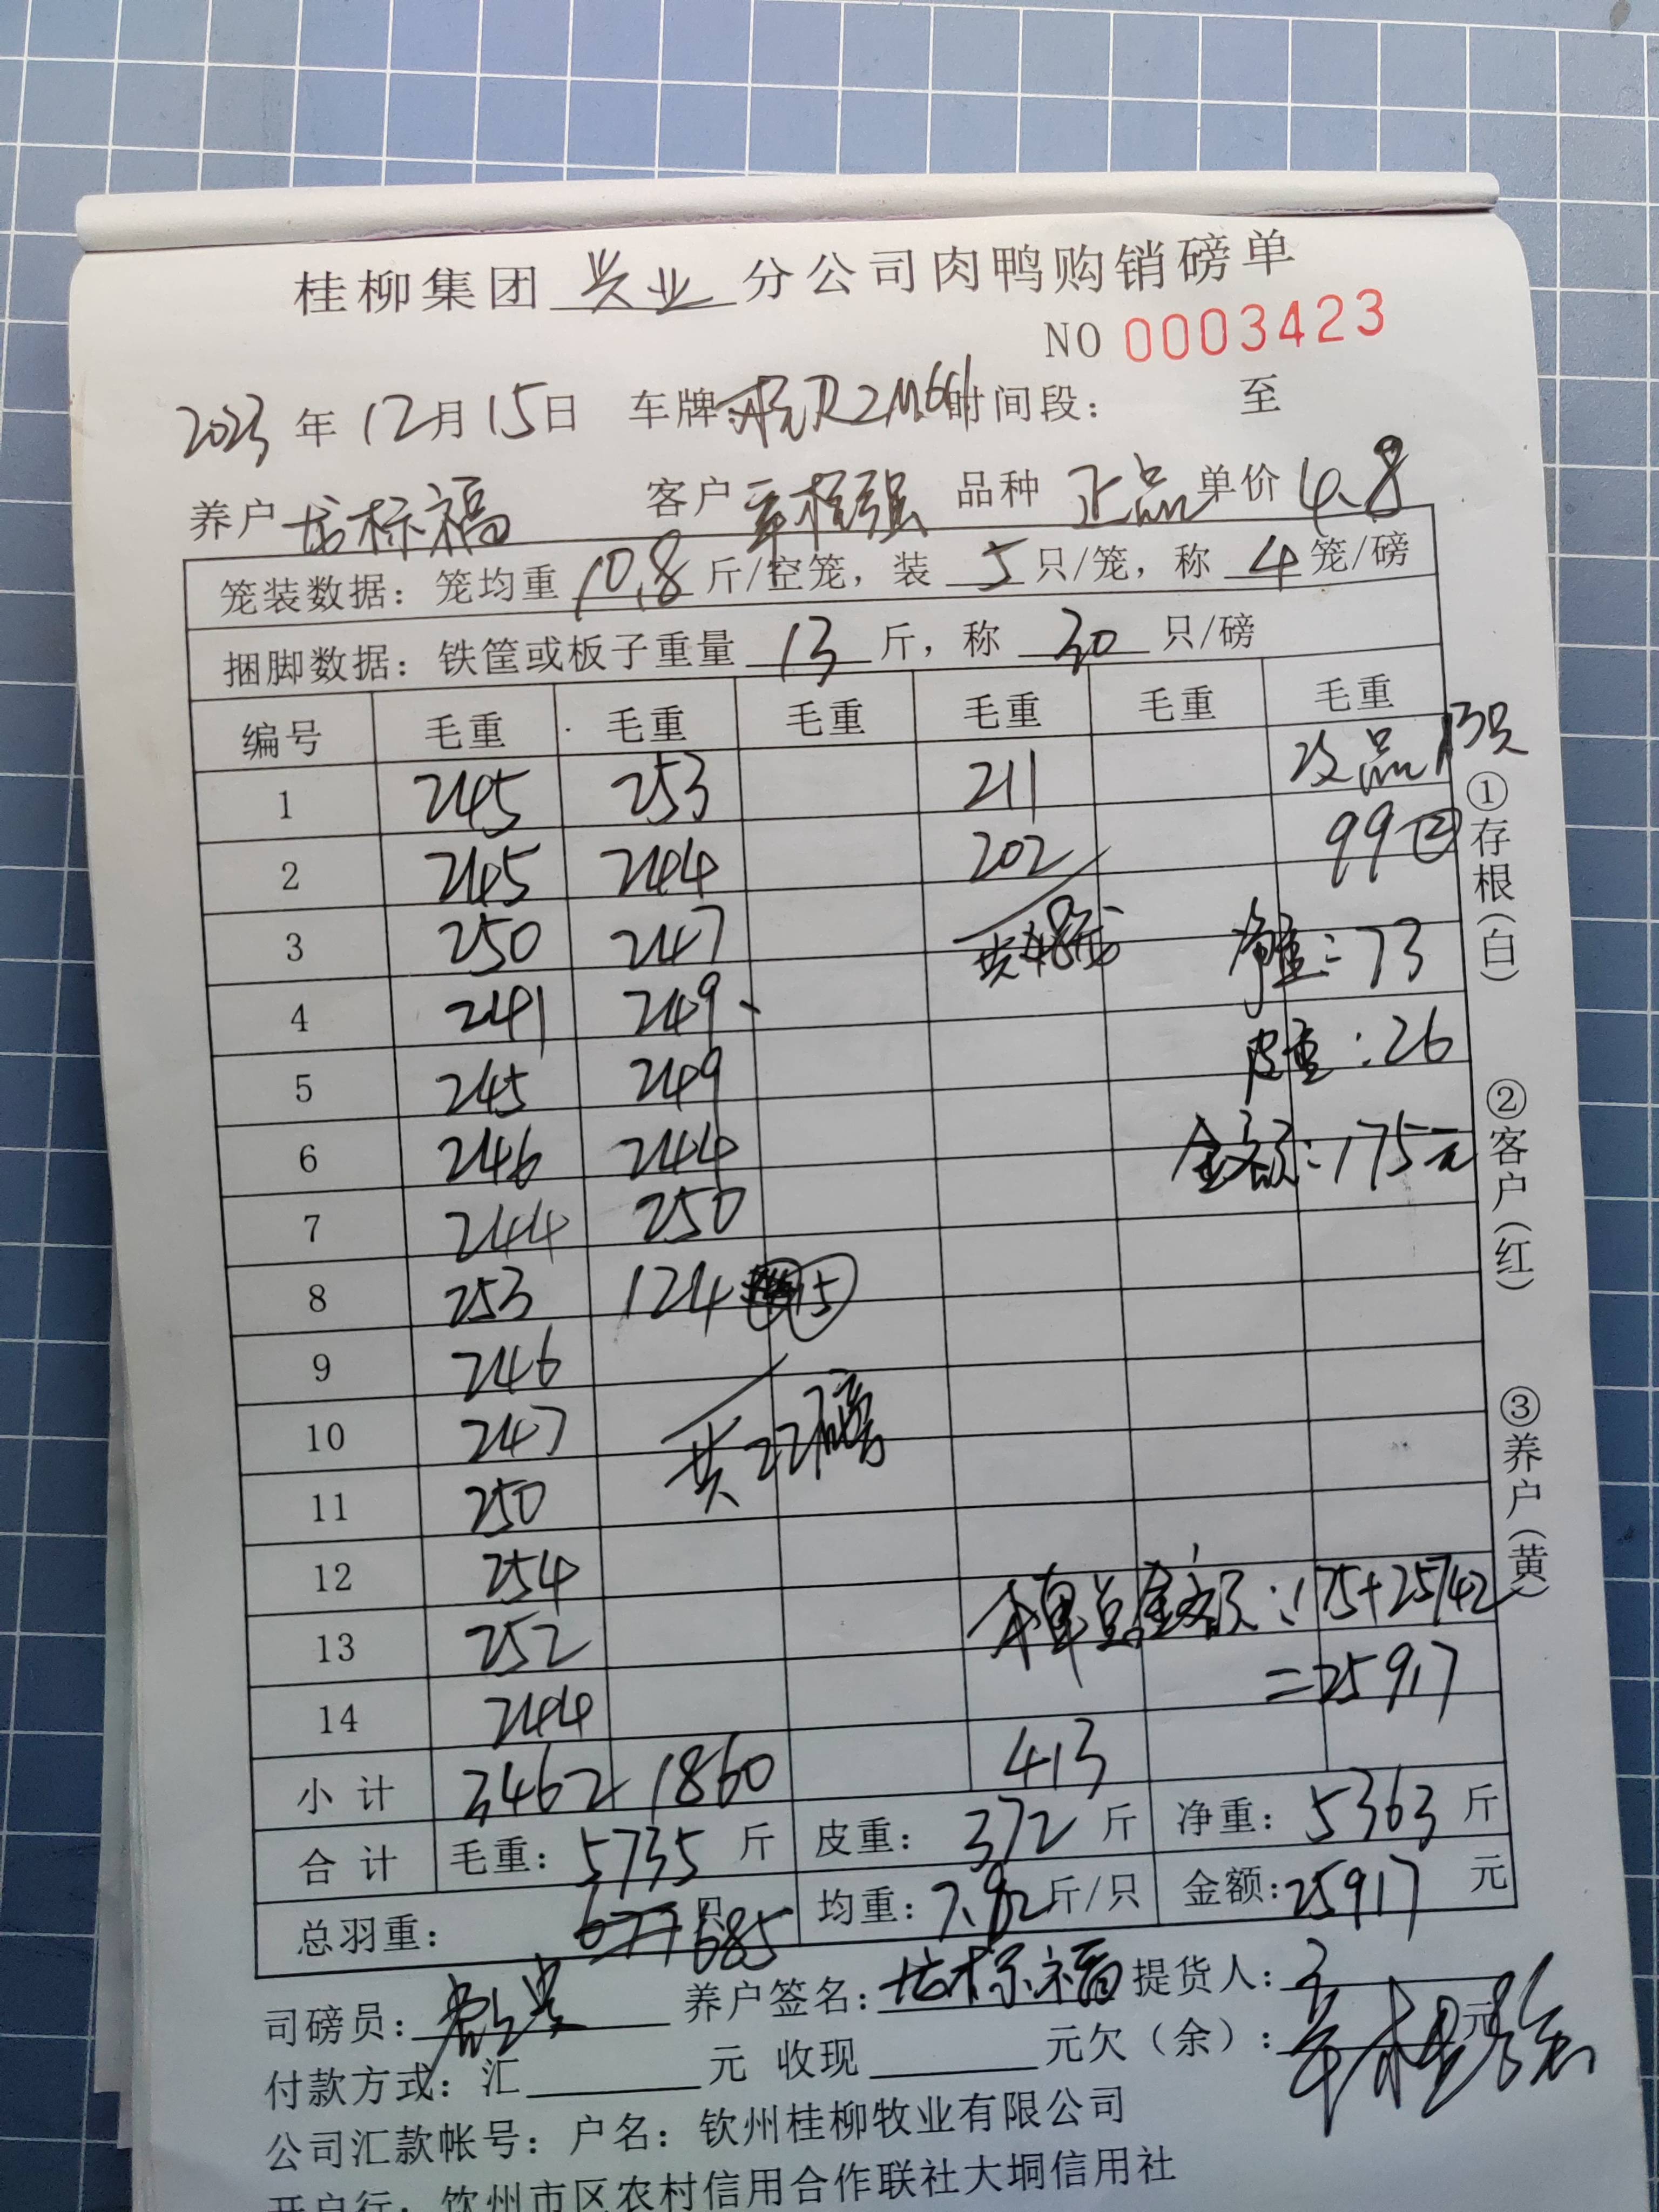 桂柳集团 兴业 分公司肉鸭购销磅单
NO 0003423
2023 年 12 月 15 日 车牌: R2M661 时间段: 至
养户 标福 客户 程强 品种 正品 单价 4.8
笼装数据: 笼均重 10.8 斤/空笼, 装 5 只/笼, 称 4 笼/磅
捆脚数据: 铁筐或板子重量 13 斤, 称 30 只/磅
编号 毛重 毛重 毛重 毛重 毛重 毛重
1 245 253 211 次品13只
2 245 244 202 99②
3 250 247 共48 净重:73
4 241 249 皮重:26
5 245 249
6 246 244 金额:175元
7 244 250
8 253 124 ⑮
9 246
10 247 共22磅
11 250
12 254 本单总金额:175+25742
13 252 =25917
14 244
小计 3462 1860 413
合计 毛重: 5735 斤 皮重: 372 斤 净重: 5363 斤
总羽重: 677 685 只 均重: 7.82 斤/只 金额: 25917 元
司磅员: 养户签名: 标福 提货人:
付款方式: 汇 元 收现 元欠(余): 元
公司汇款帐号: 户名: 钦州桂柳牧业有限公司
开户行: 钦州市区农村信用合作联社大垌信用社
①存根(白)
②客户(红)
③养户(黄)